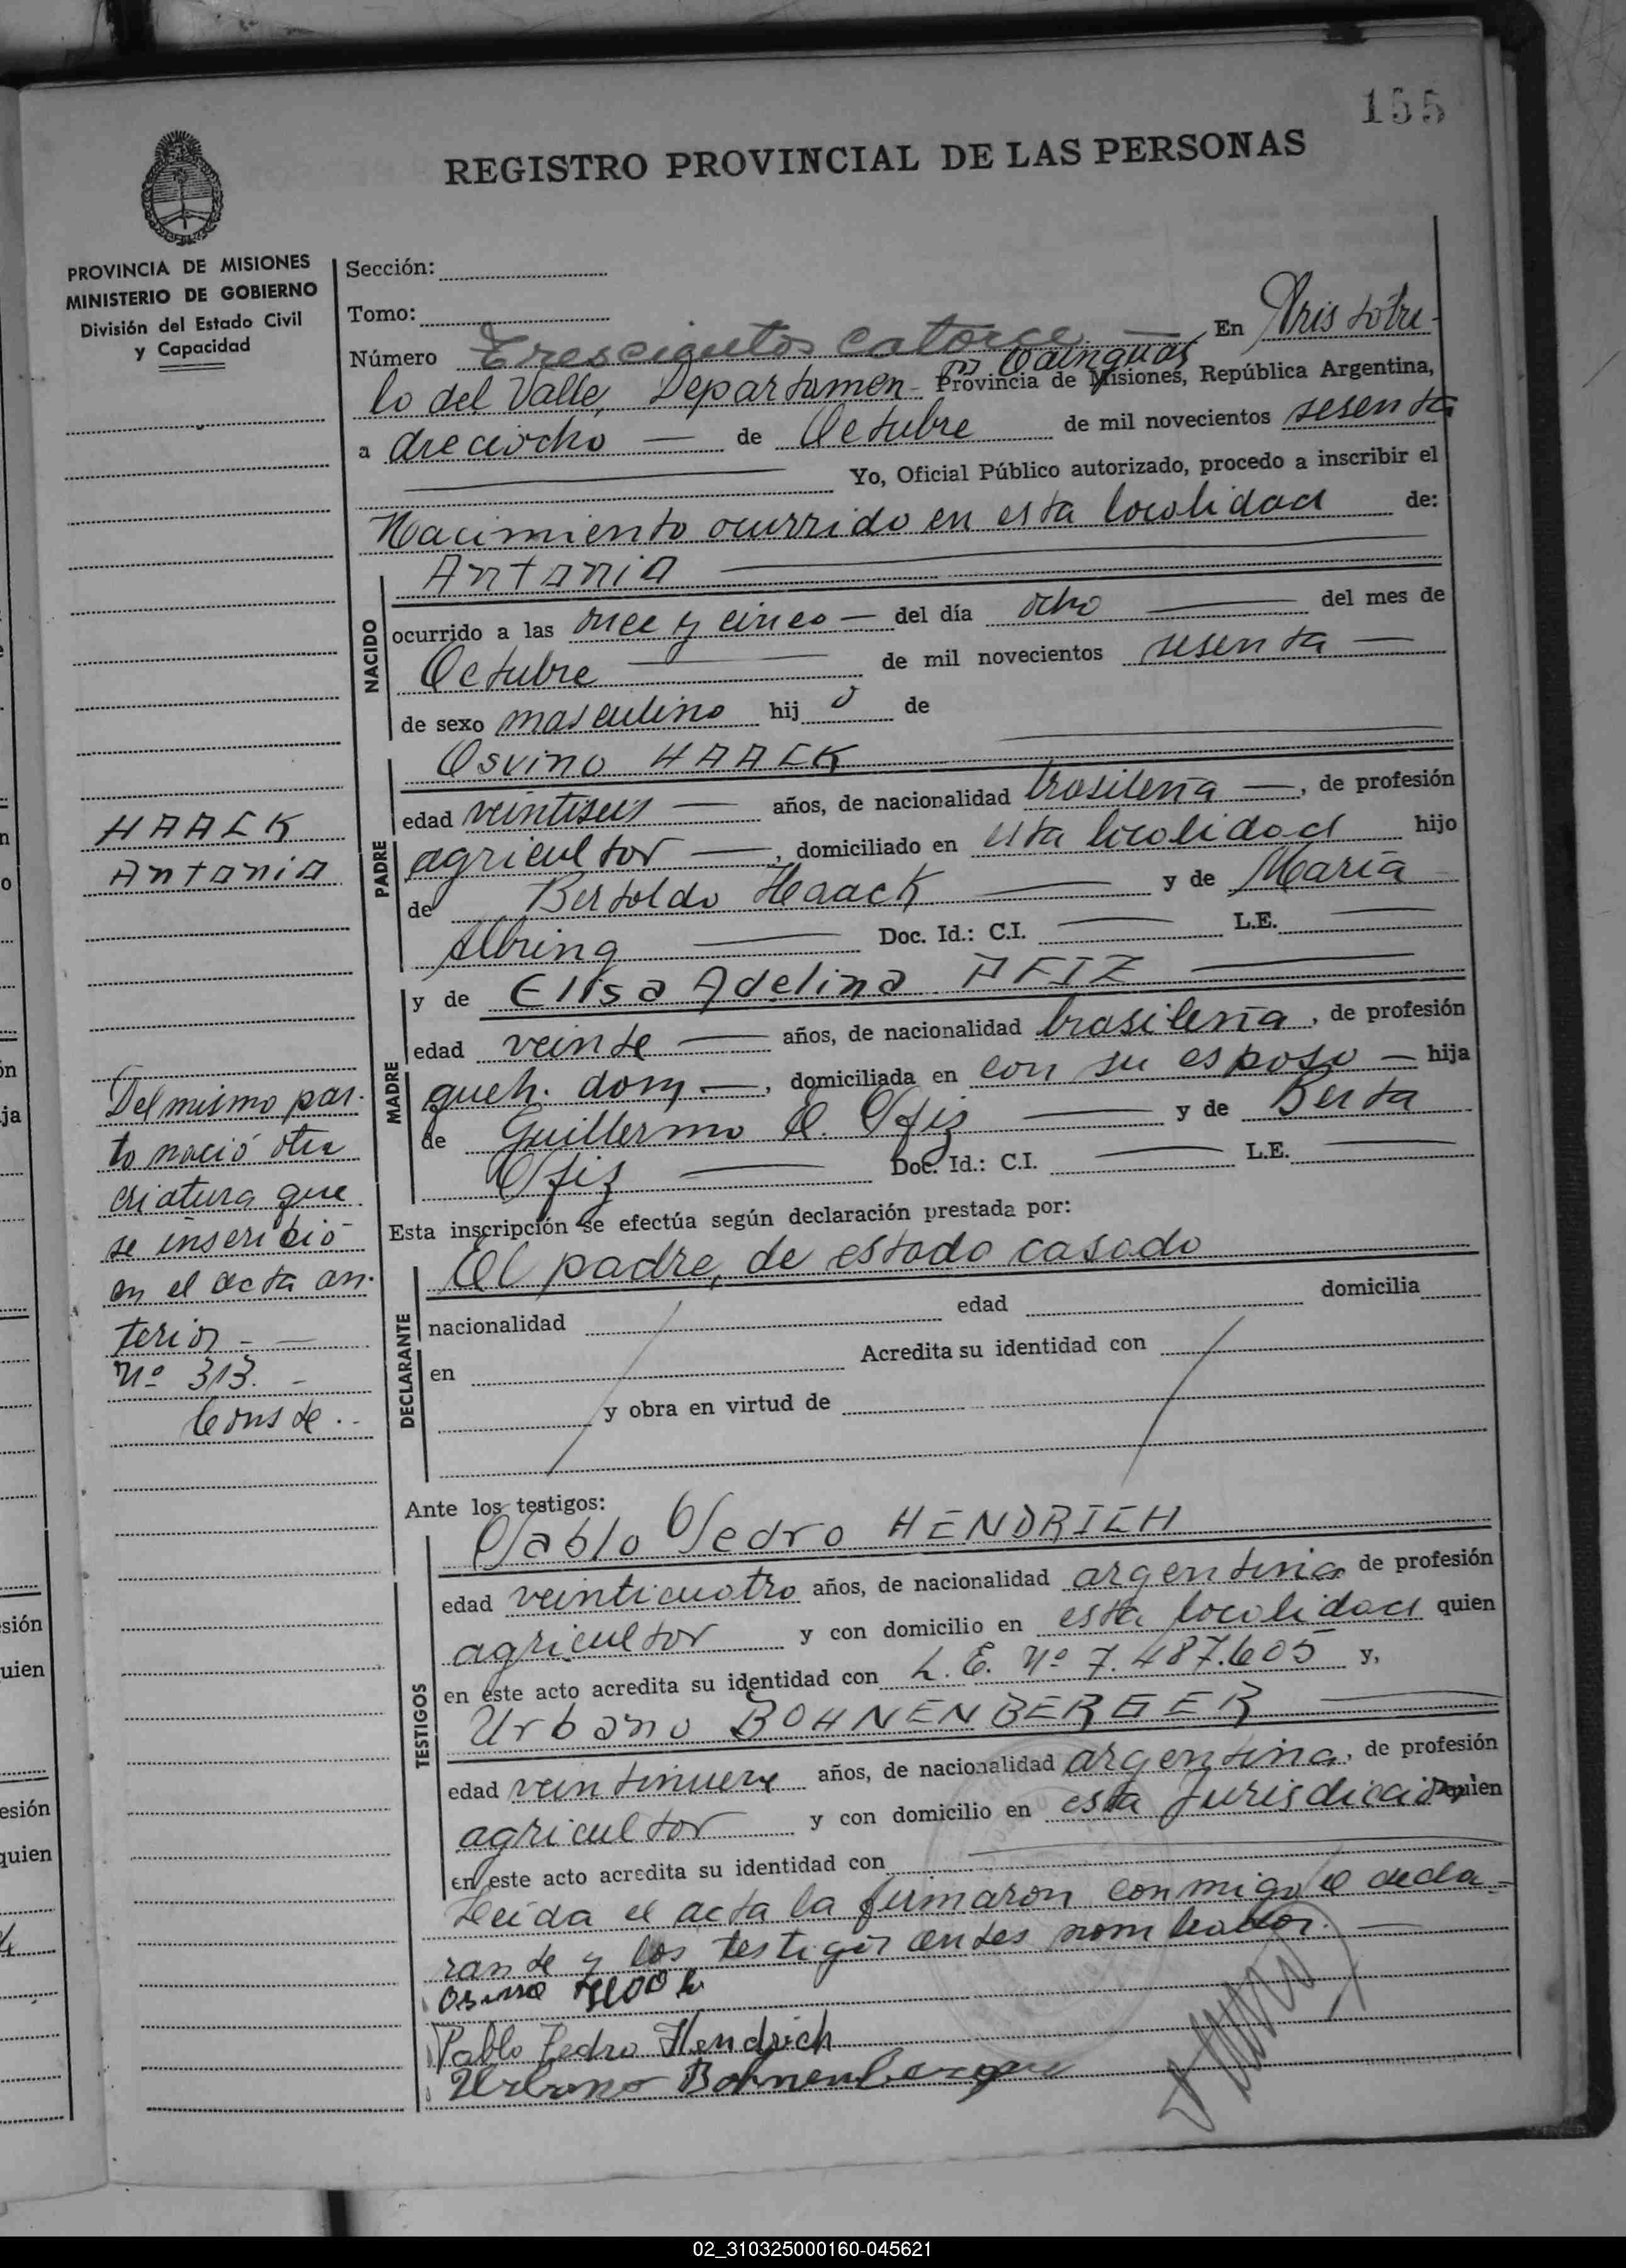 155
REGISTRO PROVINCIAL DE LAS PERSONAS
PROVINCIA DE MISIONES
MINISTERIO DE GOBIERNO
División del Estado Civil
y Capacidad
Sección:
Tomo:
Número Trescientos catorce — En Aristóbu-
to Cainguás
lo del Valle, Departamen- Provincia de Misiones, República Argentina,
a dieciocho — de Octubre de mil novecientos sesenta
Yo, Oficial Público autorizado, procedo a inscribir el
Nacimiento ocurrido en esta localidad de:
NACIDO
Antonio
ocurrido a las once y cinco — del día ocho — del mes de
Octubre — de mil novecientos sesenta —
de sexo masculino hij o de
PADRE
Osvino HAACK
edad veintiseis — años, de nacionalidad brasileña —, de profesión
agricultor —, domiciliado en esta localidad hijo
de Bertoldo Haack — y de María
Albring — Doc. Id.: C.I. — L.E. —
MADRE
y de Elisa Adelina AFIZ —
edad veinte — años, de nacionalidad brasileña, de profesión
queh. dom. —, domiciliada en con su esposo — hija
de Guillermo O. — y de Berta
— Doc. Id.: C.I. — L.E. —
HAACK
Antonio
Del mismo par-
to nació otra
criatura que
se inscribió
en el acta an-
terior - —
Nº 313. -
Conste.-
Esta inscripción se efectúa según declaración prestada por:
DECLARANTE
El padre, de estado casado
nacionalidad edad domicilia
en Acredita su identidad con
y obra en virtud de
Ante los testigos:
TESTIGOS
Pablo Pedro HENDRICH
edad veinticuatro años, de nacionalidad argentina de profesión
agricultor y con domicilio en esta localidad quien
en este acto acredita su identidad con L.E. Nº 7.487.605 y,
Urbano BOHNENBERGER —
edad veintinueve años, de nacionalidad argentina, de profesión
agricultor y con domicilio en esta Jurisdicción quien
en este acto acredita su identidad con —
Leída el acta la firmaron conmigo el decla-
rante y los testigos antes nombrados. —
Osvino Haack
Pablo Pedro Hendrich
Urbano Bohnenberger
02_310325000160-045621